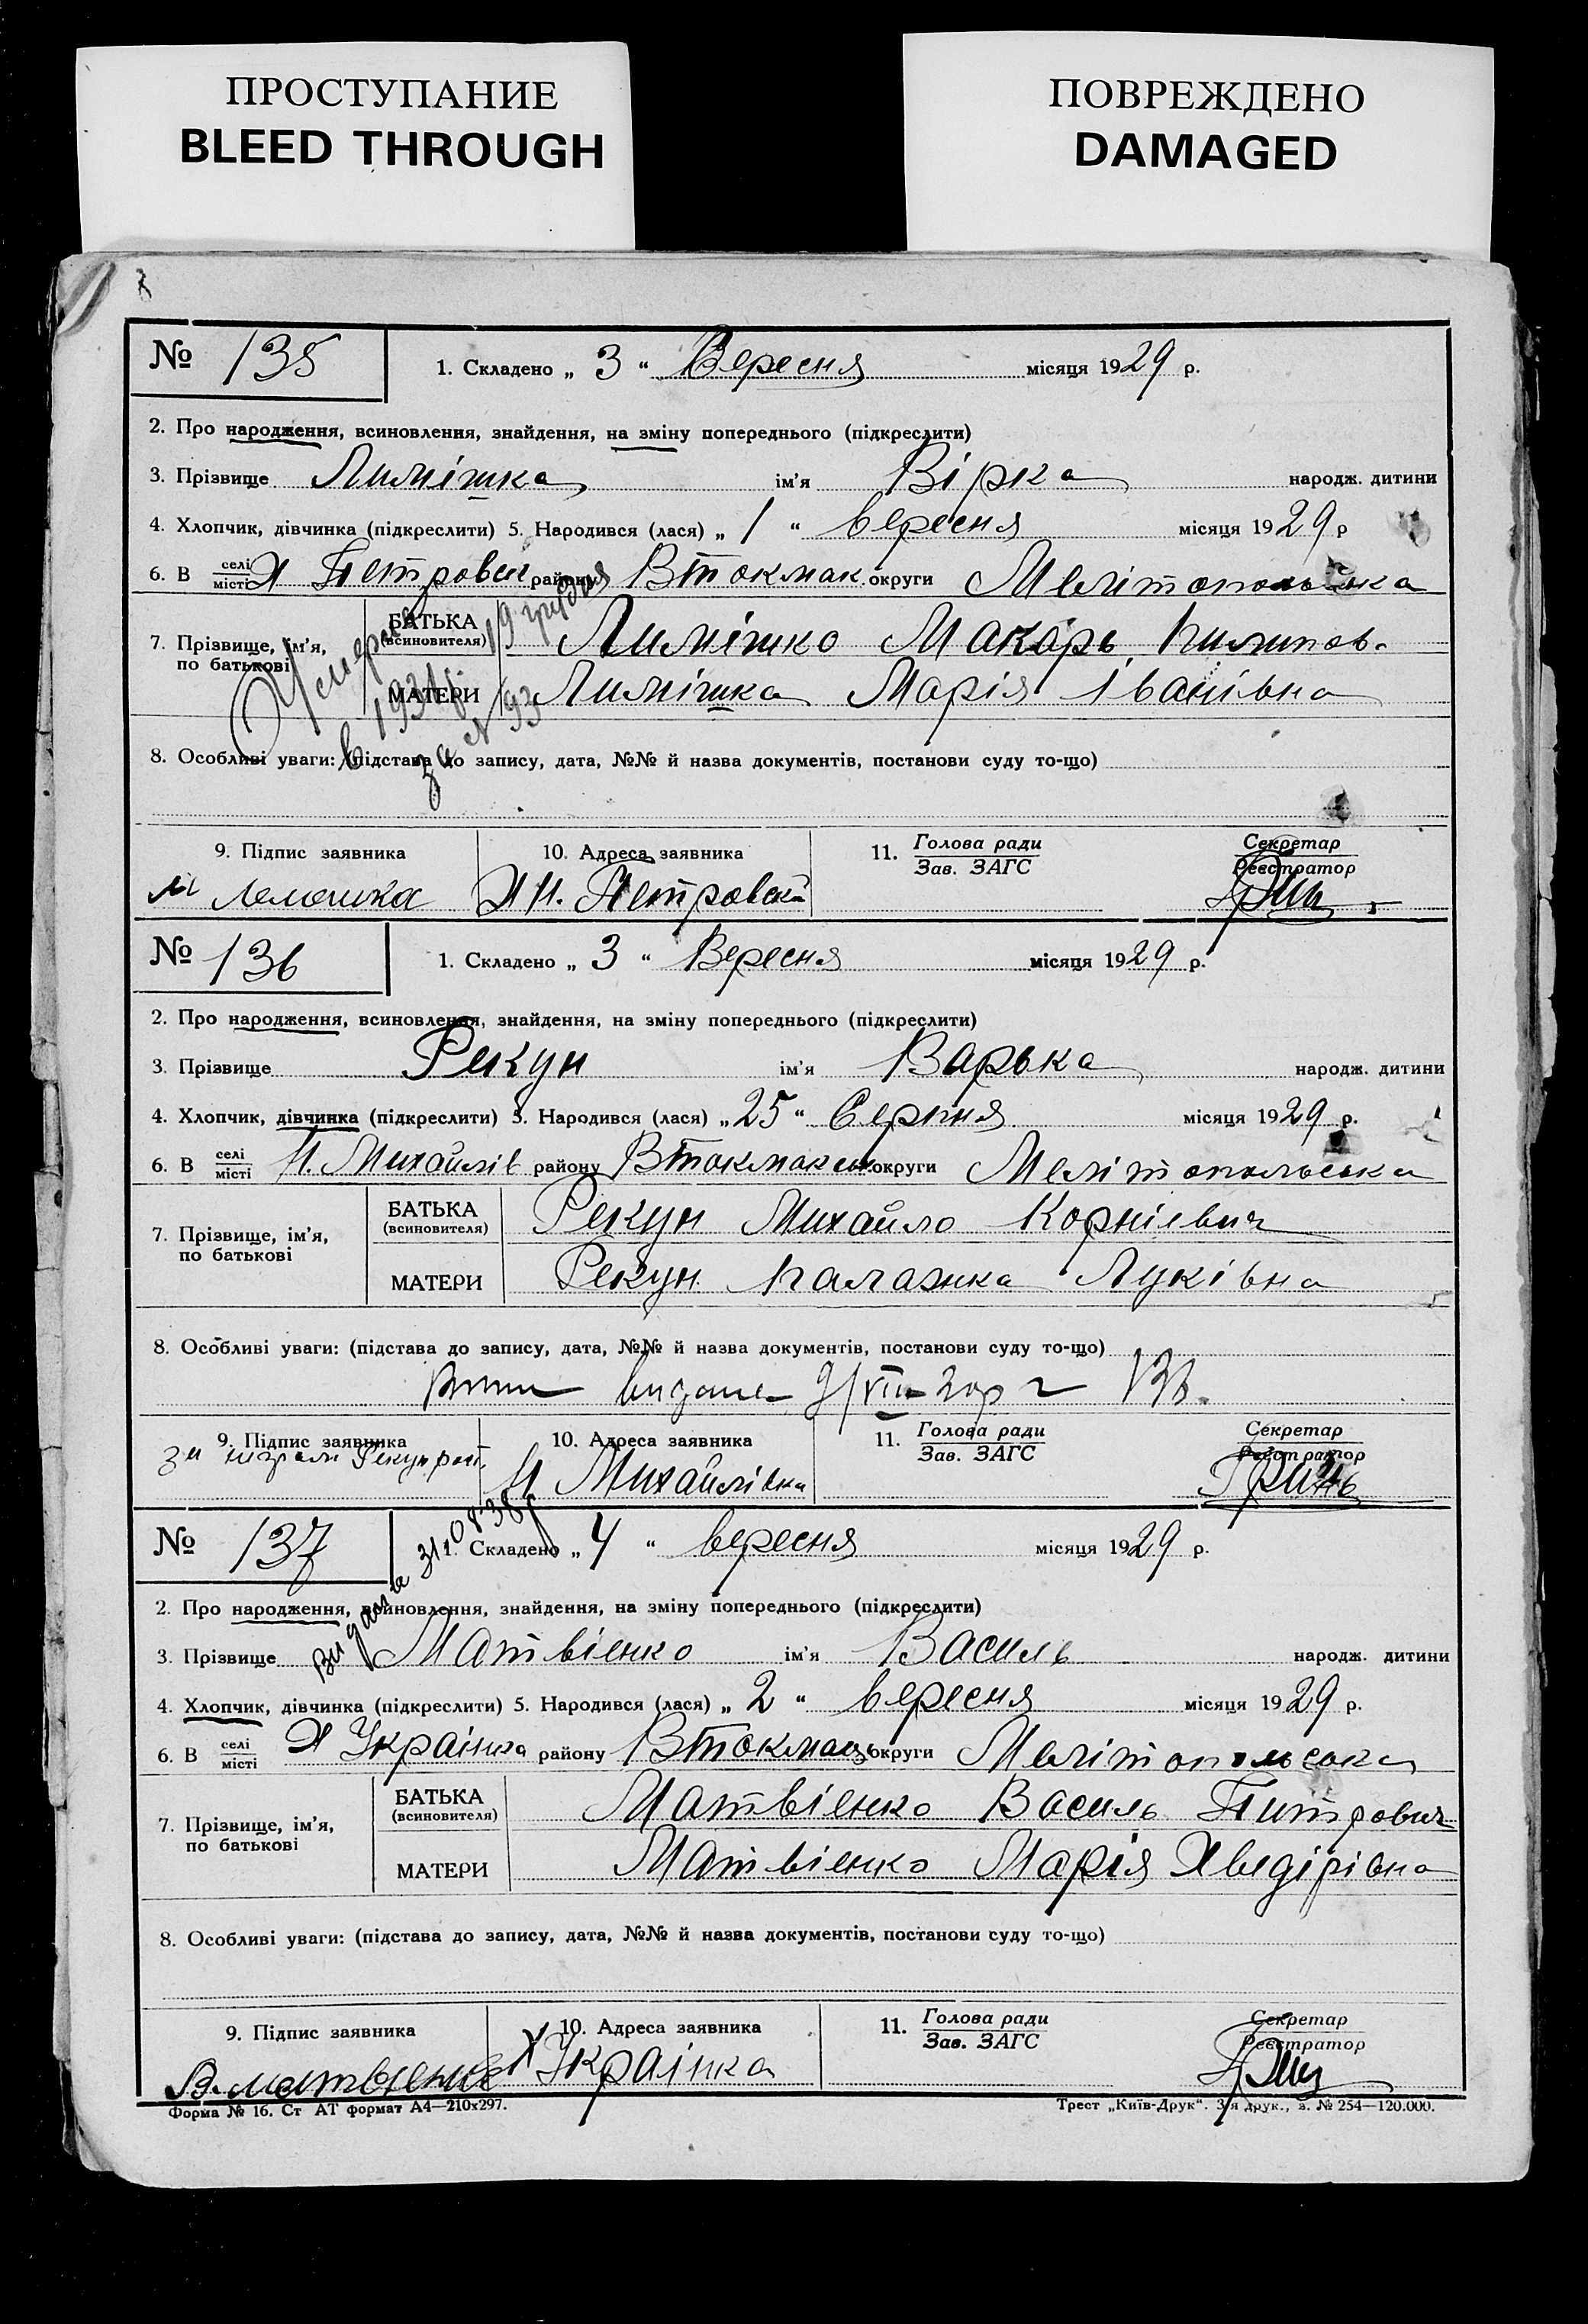 ПРОСТУПАНИЕ
BLEED THROUGH
ПОВРЕЖДЕНО
DAMAGED
№ 135
1. Складено „ 3 “ Вересня місяця 1929 р.
2. Про народження, всиновлення, знайдення, на зміну попереднього (підкреслити)
3. Прізвище Лимішка ім'я Вірка народж. дитини
4. Хлопчик, дівчинка (підкреслити) 5. Народився (лася) „ 1 “ вересня місяця 1929 р
6. В селі місті Х Петровск району ВТокмак округи Мелітопольска
7. Прізвище, ім'я, по батькові
БАТЬКА (всиновителя) Лимішко Макарь Пилипов.
МАТЕРИ Лимішка Марія Іванівна
Умерла 19 грудня
в 1931 р.
за N 93
8. Особливі уваги: (підстава до запису, дата, №№ й назва документів, постанови суду то-що)
9. Підпис заявника
10. Адреса заявника
11. Голова ради
Зав. ЗАГС
Секретар
Реєстратор
М Лемешка
№ 136
1. Складено „ 3 “ Вересня місяця 1929 р.
2. Про народження, всиновлення, знайдення, на зміну попереднього (підкреслити)
3. Прізвище Рекун ім'я Варька народж. дитини
4. Хлопчик, дівчинка (підкреслити) 5. Народився (лася) „ 25 “ Серпня місяця 1929 р.
6. В селі місті Н. Михайлів району ВТокмакськ округи Мелітопольська
7. Прізвище, ім'я, по батькові
БАТЬКА (всиновителя) Рекун Михайло Корнієвич
МАТЕРИ Рекун Палажка Луківна
8. Особливі уваги: (підстава до запису, дата, №№ й назва документів, постанови суду то-що)
9. Підпис заявника
10. Адреса заявника
11. Голова ради
Зав. ЗАГС
Секретар
Реєстратор
Н Михайлівка
Гринь
№ 137
Видана 31.08.38р
1. Складено „ 4 “ вересня місяця 1929 р.
2. Про народження, всиновлення, знайдення, на зміну попереднього (підкреслити)
3. Прізвище Матвієнко ім'я Василь народж. дитини
4. Хлопчик, дівчинка (підкреслити) 5. Народився (лася) „ 2 “ вересня місяця 1929 р.
6. В селі місті Х Українка району ВТокмацьк округи Мелітопольська
7. Прізвище, ім'я, по батькові
БАТЬКА (всиновителя) Матвієнко Василь Питрович
МАТЕРИ Матвієнко Марія Хведірівна
8. Особливі уваги: (підстава до запису, дата, №№ й назва документів, постанови суду то-що)
9. Підпис заявника
10. Адреса заявника
11. Голова ради
Зав. ЗАГС
Секретар
Реєстратор
В. Матвіенко
Х Українка
Форма № 16. Ст АТ формат А4—210х297.
Трест „Київ-Друк“. 3-я друк., з. № 254—120.000.